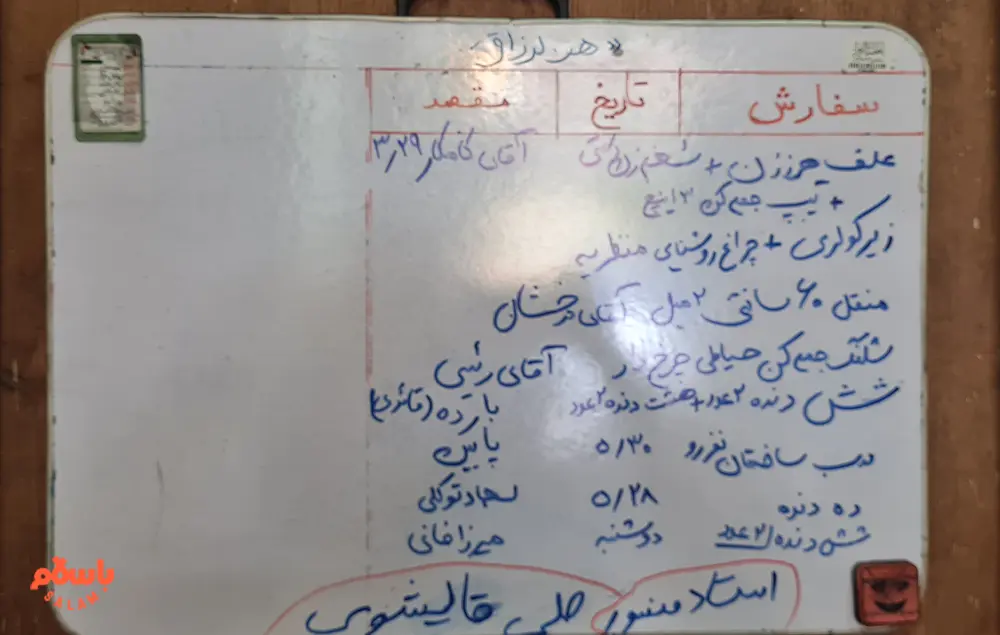 «هو الرزاق»
سفارش تاریخ مقصد
علف هرززن + شخم زن آقای کامکار ۳/۲۹
+ پیپ جمع کن ۳ اینچ
زیرکولری + چراغ روشنایی منتظریه
منقل ۶۰ سانتی ۲ میل آقای درخشان
شلنگ جمع کن حیاطی چرخ دار آقای رئیسی
شش دنده ۲ عدد + هشت دنده ۲ عدد بارده (قائدی)
درب ساختمان نفررو ۵/۳۰ پابیک
ده دنده ۵/۲۸ سجاد توکلی
شش دنده ۲ عدد دوشنبه میرزاخانی
استاد منصور علی قالیشوی
باسلام
SALAM